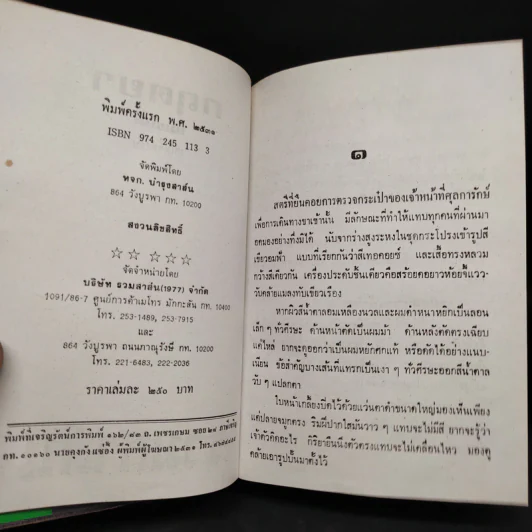 พิมพ์ครั้งแรก พ.ศ. ๒๕๓๑
ISBN 974 245 113 3
จัดพิมพ์โดย
หจก. บำรุงสาส์น
864 วังบูรพา กท. 10200
สงวนลิขสิทธิ์
☆ ☆ ☆ ☆ ☆
จัดจำหน่ายโดย
บริษัท รวมสาส์น(1977) จำกัด
1091/86-7 ศูนย์การค้าเมโทร มักกะสัน กท. 10400
โทร. 253-1489, 253-7915
และ
864 วังบูรพา ถนนภาณุรังษี กท. 10200
โทร. 221-6483, 222-2036
ราคาเล่มละ ๒๕๐ บาท
พิมพ์ที่เจริญรัตน์การพิมพ์ ๑๖๒/๔๓ ถ. เพชรเกษม ซอย ๒๐
กท. ๑๐๑๖๐
๑
สตรีที่ยืนคอยการตรวจกระเป๋าของเจ้าหน้าที่ศุลการักษ์
เพื่อการเดินทางขาเข้านั้น มีลักษณะที่ทำให้แทบทุกคนที่ผ่านมา
อดมองอย่างทึ่งมิได้ นับจากร่างสูงระหงในชุดกระโปรงเข้ารูปสี
เขียวอมฟ้า แบบที่เรียกกันว่าสีเทอคอยซ์ และเสื้อทรงหลวม
กว้างสีเดียวกัน เครื่องประดับชิ้นเดียวคือสร้อยคอยาวห้อยจี้แวว-
วับคล้ายแมลงทับเขียวเรือง
หากผิวสีน้ำตาลอมเหลืองนวลและผมดำหนาหยิกเป็นลอน
เล็ก ๆ ทั่วศีรษะ ด้านหน้าตัดเป็นผมม้า ด้านหลังตัดตรงเฉียบ
แค่ไหล่ ยากจะดูออกว่าเป็นผมหยักศกแท้ หรือดัดได้อย่างแนบ-
เนียน ข้อสำคัญบางเส้นที่แทรกเป็นเงา ๆ ทั่วศีรษะออกสีน้ำตาล
วับ ๆ แปลกตา
ใบหน้าเกลี้ยงปิดไว้ด้วยแว่นตาดำขนาดใหญ่มองเห็นเพียง
แค่ปลายจมูกตรง ริมฝีปากใสมันวาว ๆ แทบจะไม่มีสี ยากจะรู้ว่า
เจ้าตัวคิดอะไร กิริยายืนนิ่งตัวตรงแทบจะไม่เคลื่อนไหว มองดู
คล้ายเอารูปปั้นมาตั้งไว้